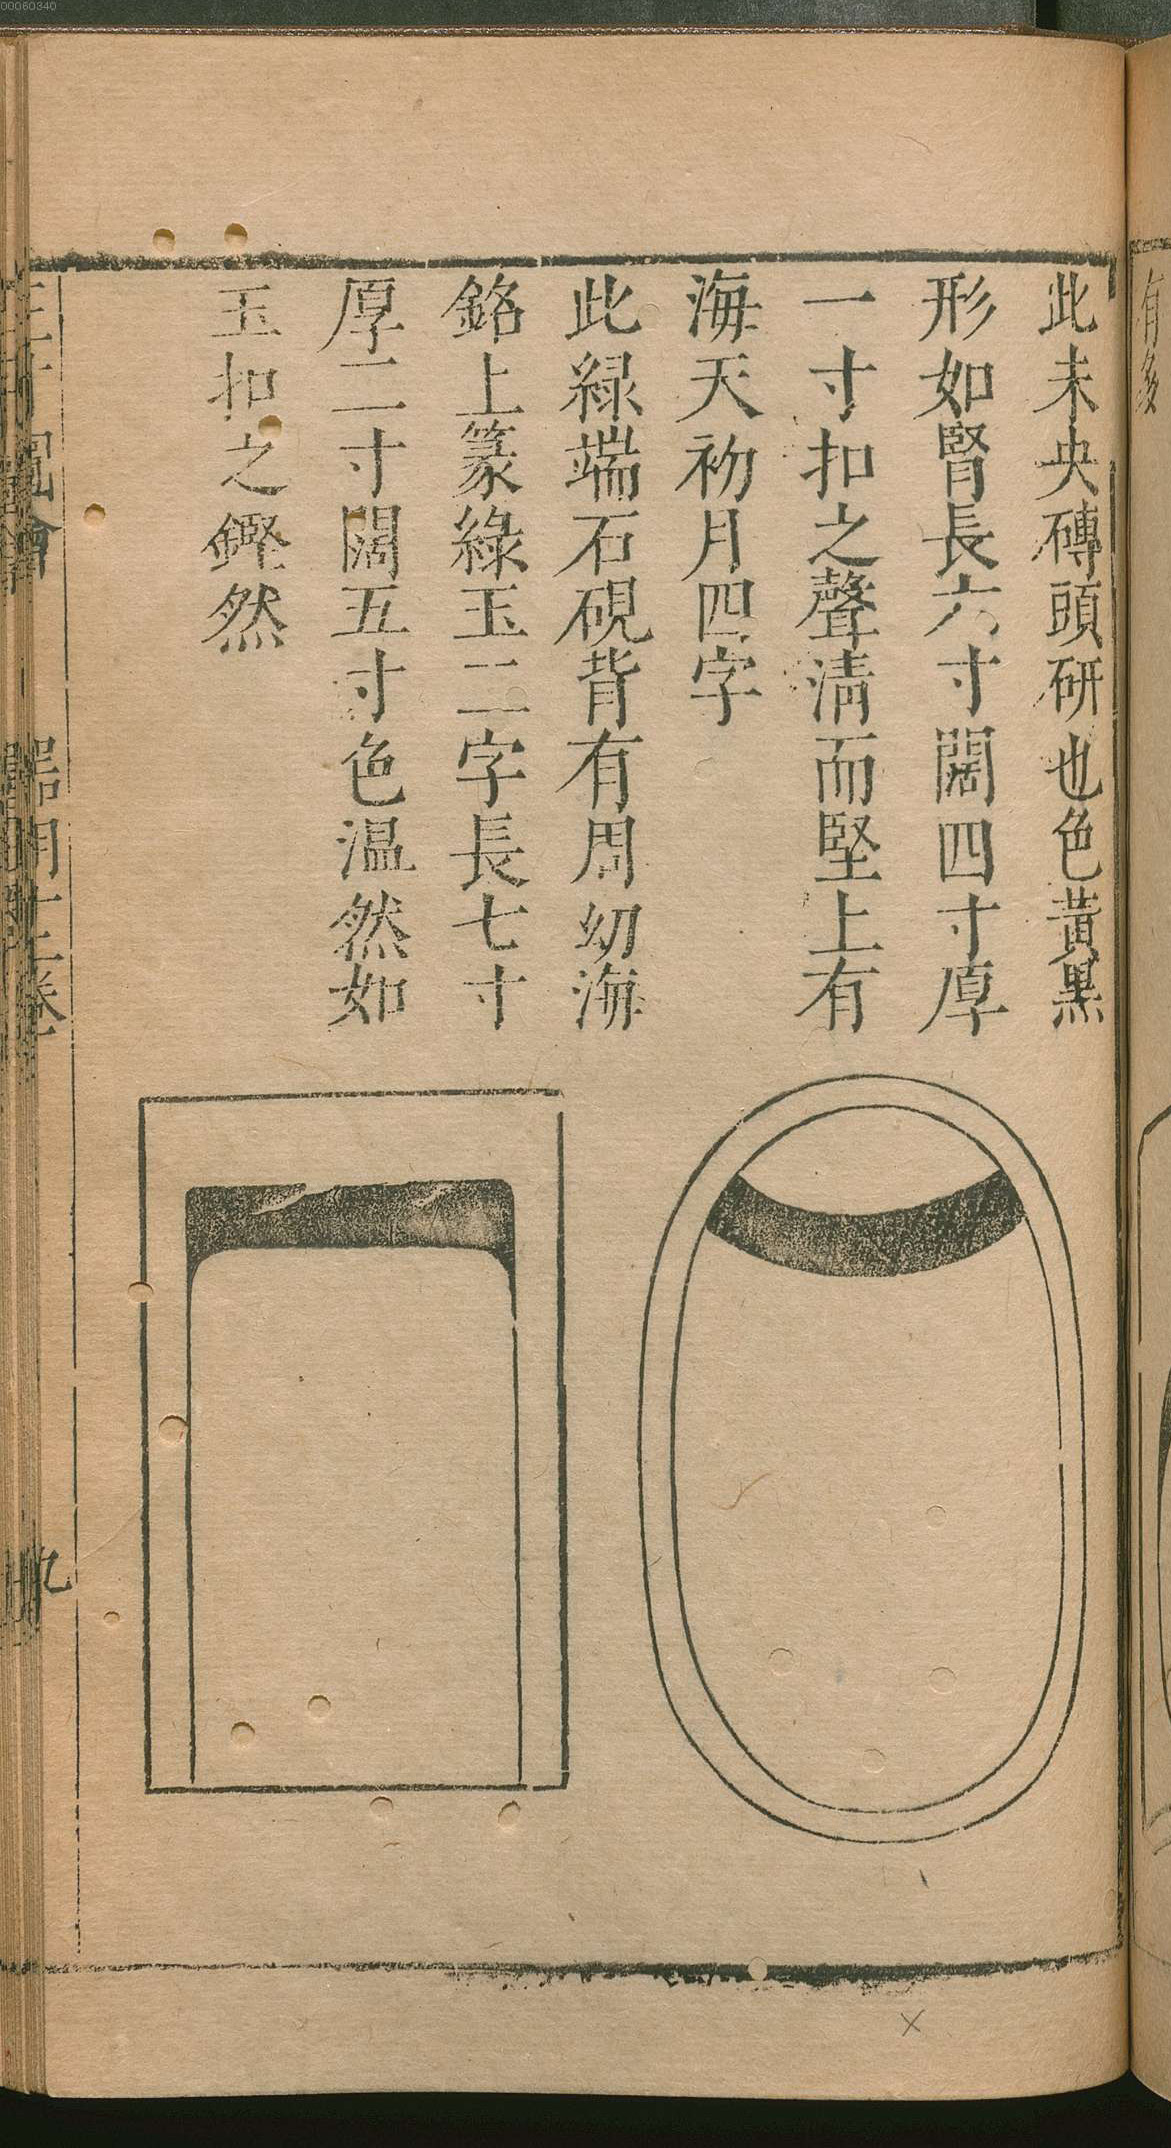 此未央磚頭研也色黃黑
形如腎長六寸闊四寸厚
一寸扣之聲清而堅上有
海天初月四字
此緑端石硯背有周幼海
銘上篆綠玉二字長七寸
厚二寸闊五寸色温然如
玉扣之鏗然
器用十二卷
九
有多
00060340